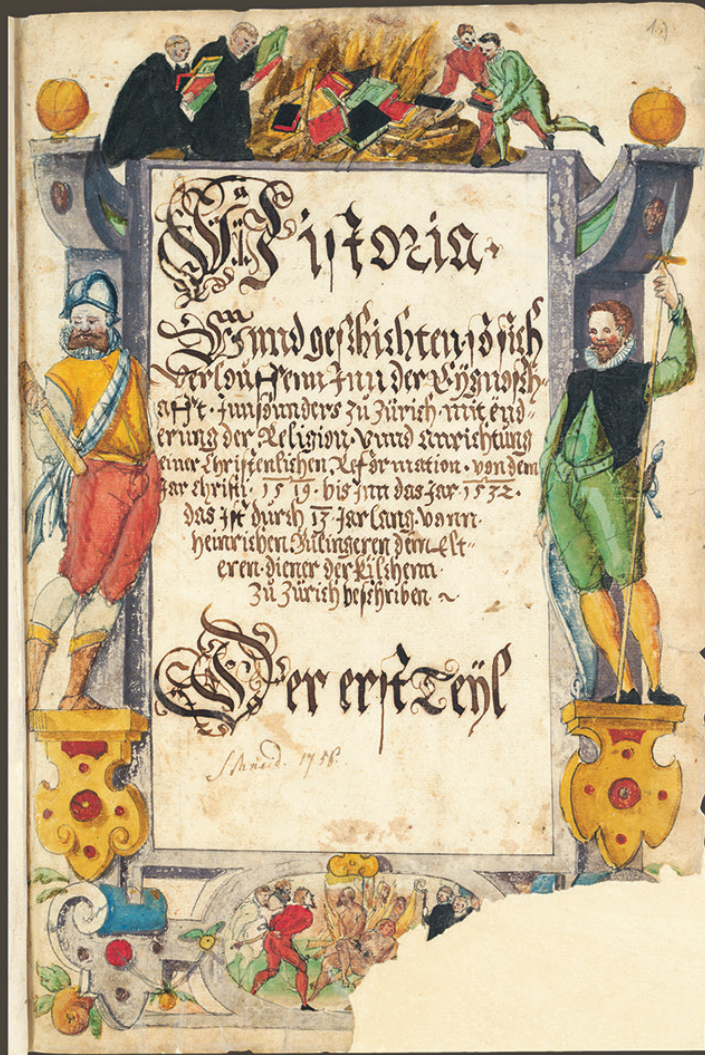 Historia.
Vnnd geschichten, so sich
verlouffenn Inn der Eÿgnosch-
afft. Innsonders zů Zürich mit end-
erung der Religion. vnnd anrichtung
einer Christenlichen Reformation. von dem
Jar Christi. 1519. bis Inn das Jar. 1532.
das ist durch 13 Jar lang. vonn.
Heinrichen Bůlingeren dem Elt-
eren. diener der kilchenn
Zů Zürich beschriben. ~
Der erst Teÿl
1756.